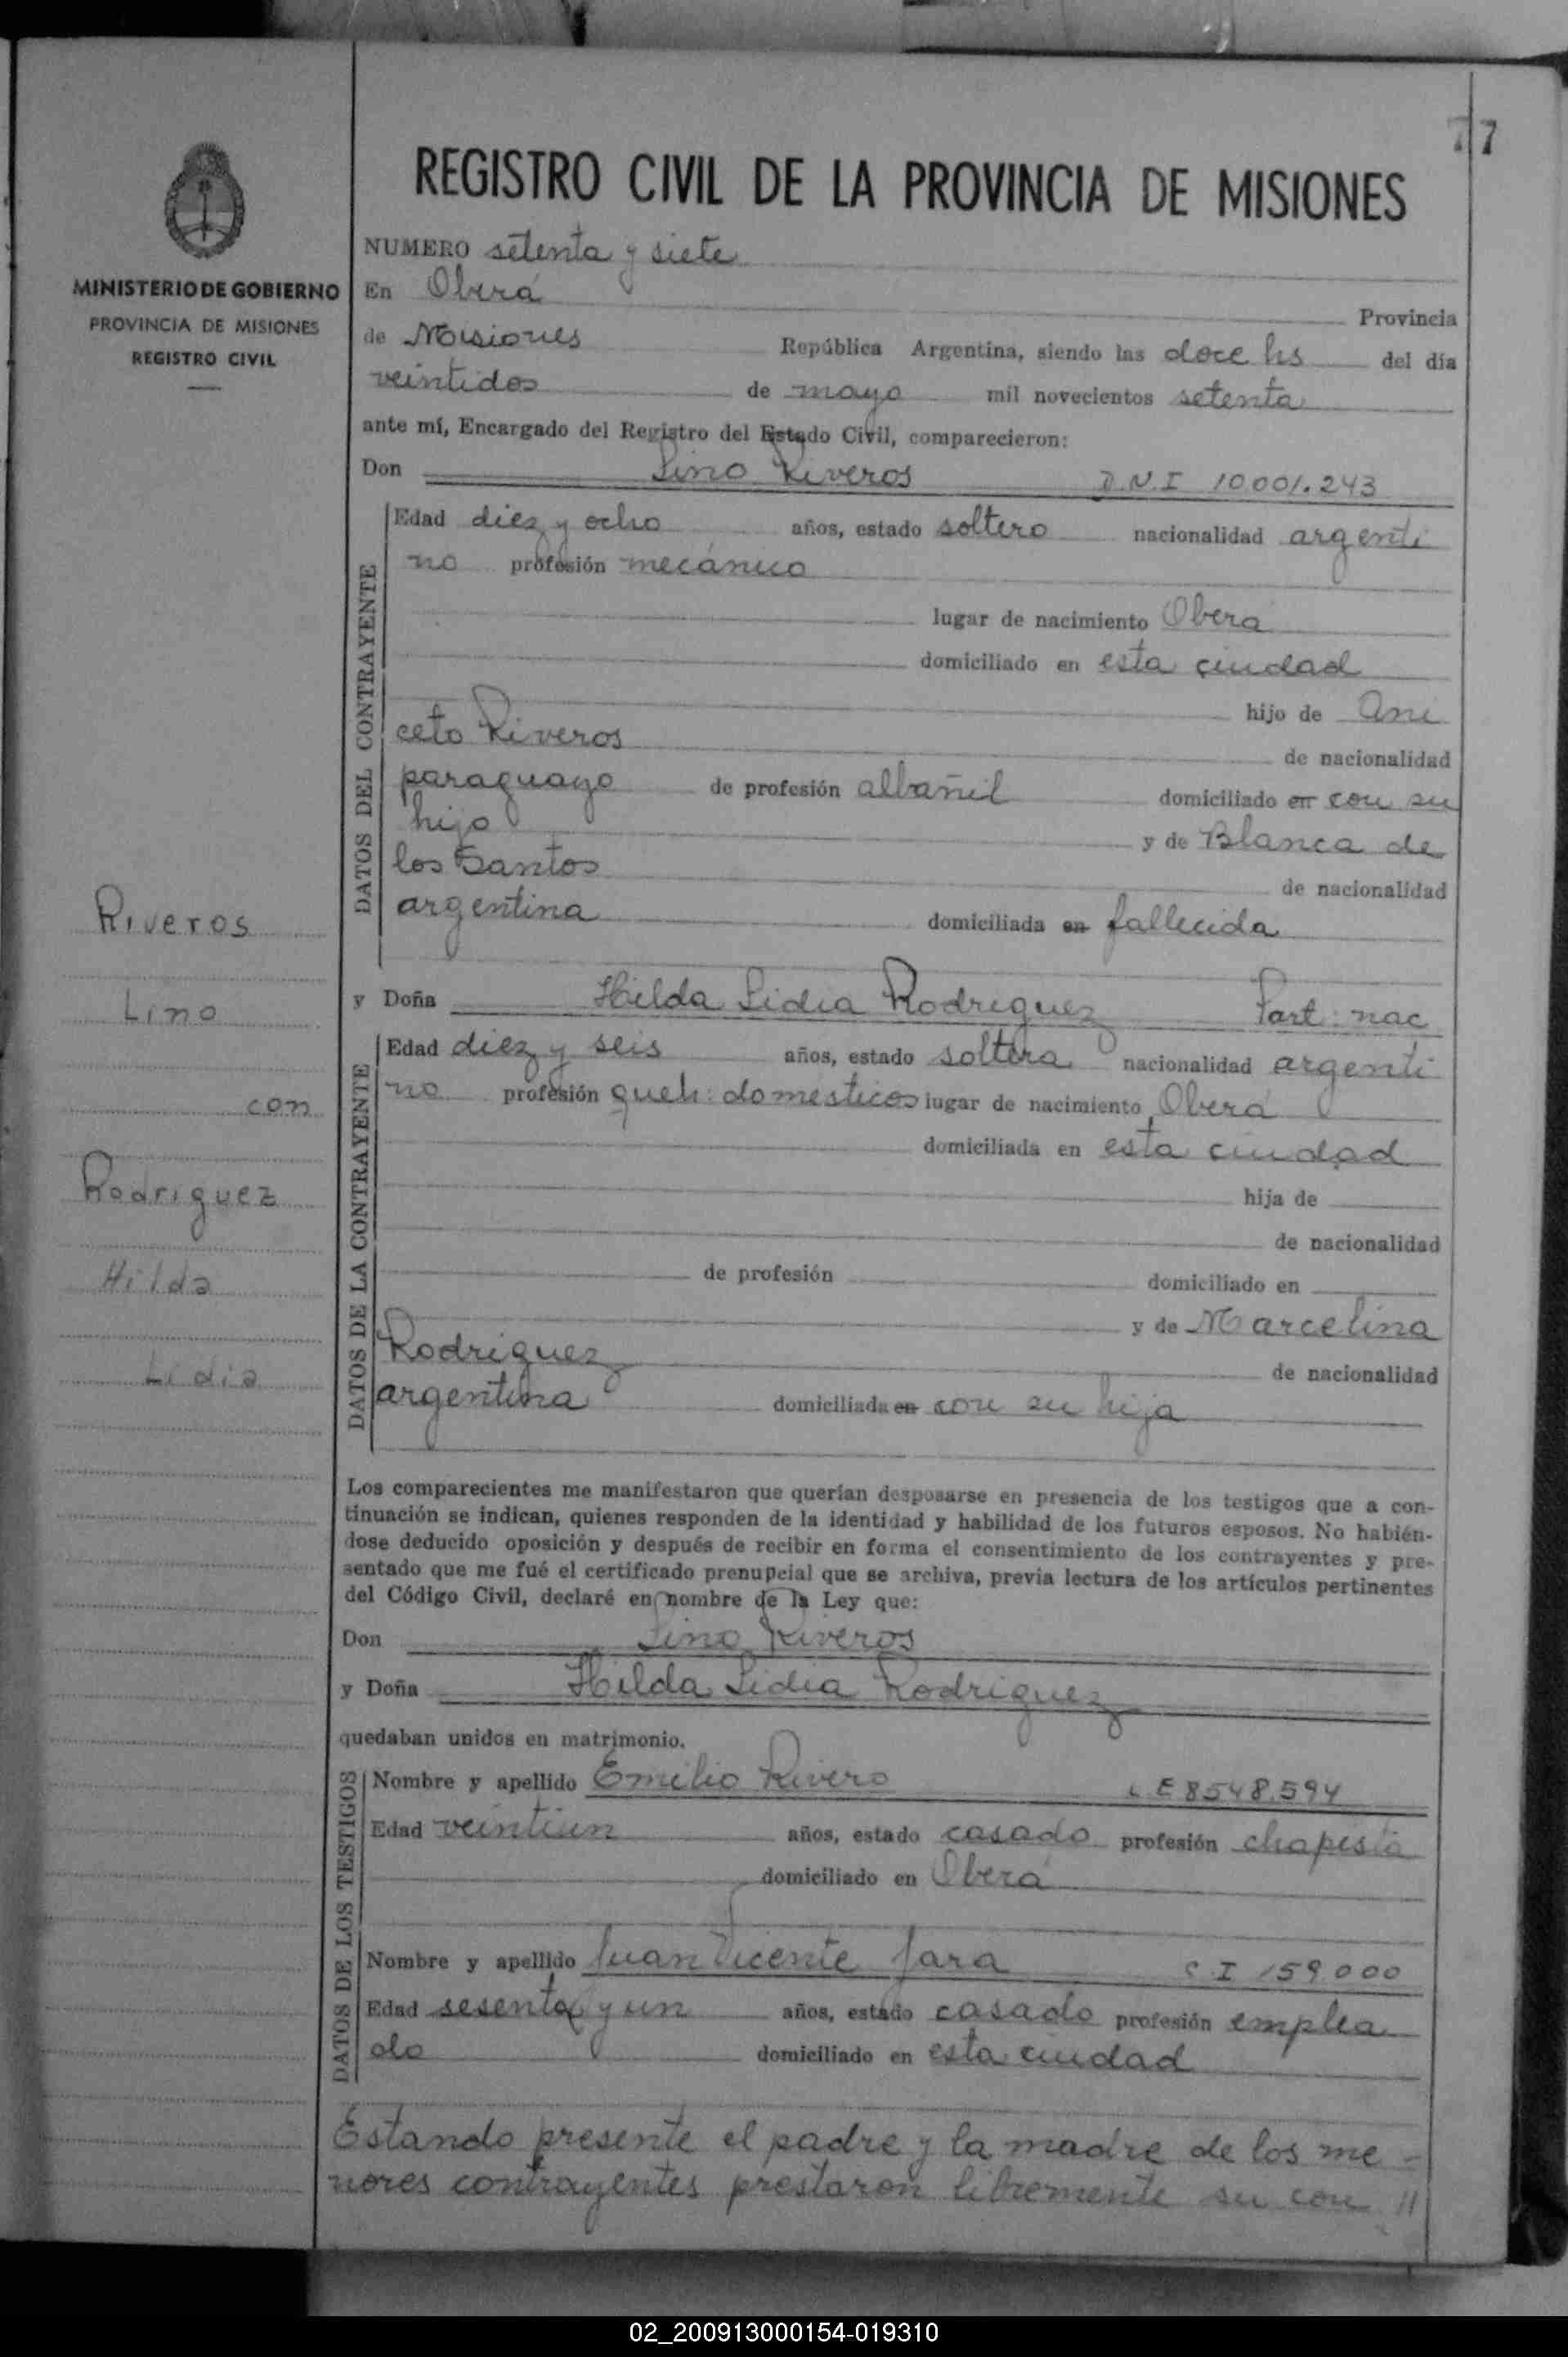 77
REGISTRO CIVIL DE LA PROVINCIA DE MISIONES
MINISTERIO DE GOBIERNO
PROVINCIA DE MISIONES
REGISTRO CIVIL
NUMERO setenta y siete
En Oberá Provincia
de Misiones República Argentina, siendo las doce hs del día
veintidos de mayo mil novecientos setenta
ante mí, Encargado del Registro del Estado Civil, comparecieron:
Don Lino Riveros D.N.I 10.001.243
DATOS DEL CONTRAYENTE
Edad diez y ocho años, estado soltero nacionalidad argenti
no profesión mecánico
lugar de nacimiento Oberá
domiciliado en esta ciudad
hijo de Ani
ceto Riveros de nacionalidad
paraguayo de profesión albañil domiciliado en con su
hijo y de Blanca de
los Santos de nacionalidad
argentina domiciliada en fallecida
y Doña Hilda Lidia Rodriguez Part. nac
DATOS DE LA CONTRAYENTE
Edad diez y seis años, estado soltera nacionalidad argenti
na profesión queh: domesticos lugar de nacimiento Oberá
domiciliada en esta ciudad
hija de
de nacionalidad
de profesión domiciliado en
y de Marcelina
Rodriguez de nacionalidad
argentina domiciliada en con su hija
Riveros
Lino
con
Rodriguez
Hilda
Lidia
Los comparecientes me manifestaron que querían desposarse en presencia de los testigos que a con-
tinuación se indican, quienes responden de la identidad y habilidad de los futuros esposos. No habién-
dose deducido oposición y después de recibir en forma el consentimiento de los contrayentes y pre-
sentado que me fué el certificado prenupcial que se archiva, previa lectura de los artículos pertinentes
del Código Civil, declaré en nombre de la Ley que:
Don Lino Riveros
y Doña Hilda Lidia Rodriguez
quedaban unidos en matrimonio.
DATOS DE LOS TESTIGOS
Nombre y apellido Emilio Rivero L E 8548.594
Edad veintiun años, estado casado profesión chapista
domiciliado en Oberá
Nombre y apellido Juan Vicente Jara C I 159000
Edad sesenta y un años, estado casado profesión emplea
do domiciliado en esta ciudad
Estando presente el padre y la madre de los me -
nores contrayentes prestaron libremente su con //
02_200913000154-019310